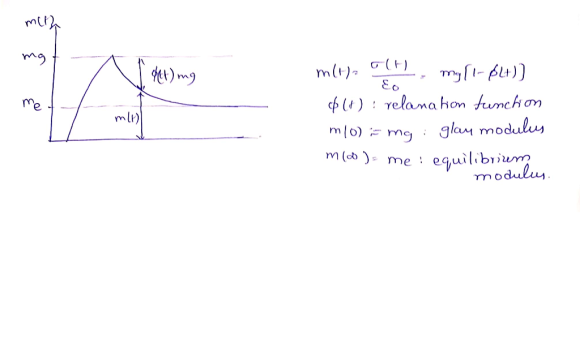 m(t)
mg
me
ϕ(t)mg
m(t)
m(t) = σ(t)/ε₀ = mg[1-ϕ(t)]
ϕ(t) : relaxation function
m(0) = mg : glass modulus
m(∞) = me : equilibrium
modulus.